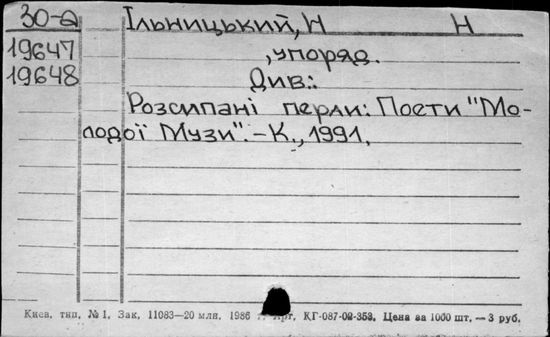 30-а Ільницький, Н Н
19647 ,упоряд.
19648 Див.:
Розсипані перли: Поети "Мо-
лодої Музи".-К., 1991.
Києв. тип. №1. Зак. 11083—20 млн. 1986 г. Арт. КГ-087-02-353. Цена за 1000 шт. — 3 руб.